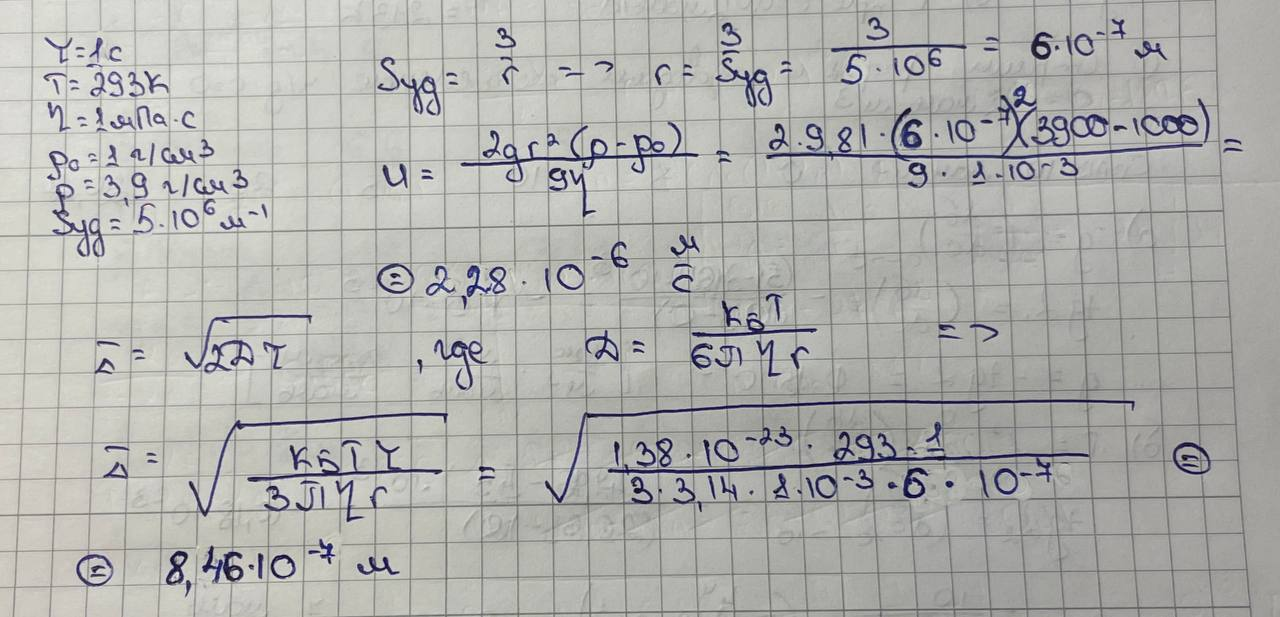 τ = 1 с
T = 293 K
η = 1 мПа·с
ρ₀ = 1 г/см³
ρ = 3,9 г/см³
Sуд = 5·10⁶ м⁻¹
Sуд = 3/r => r = 3/Sуд = 3/(5·10⁶) = 6·10⁻⁷ м
u = 2gr²(ρ-ρ₀)/9η = 2·9,81·(6·10⁻⁷)²(3900-1000)/(9·1·10⁻³) =
⊜ 2,28·10⁻⁶ м/с
Δ̅ = √(2Dτ) , где D = KБT/(6πηr) =>
Δ̅ = √(KБTτ/(3πηr)) = √(1,38·10⁻²³·293·1/(3·3,14·1·10⁻³·6·10⁻⁷)) ⊜
⊜ 8,46·10⁻⁷ м